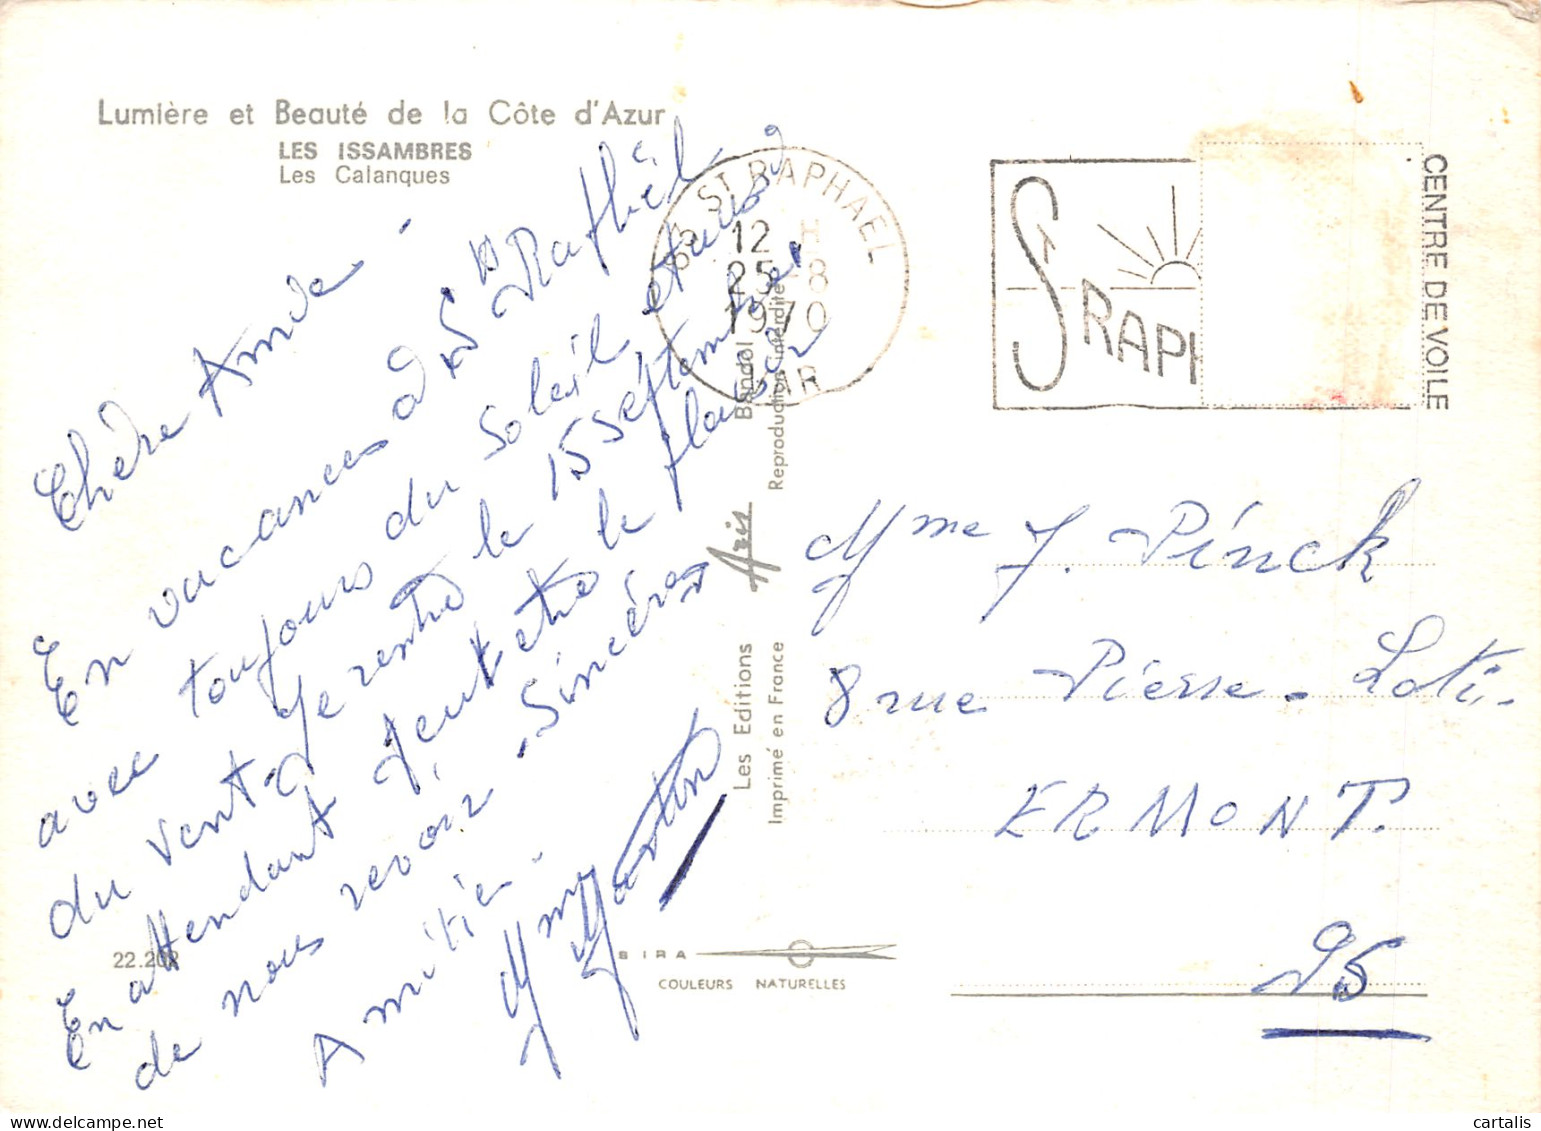 Lumière et Beauté de la Côte d'Azur
LES ISSAMBRES
Les Calanques
Chère Amie
En vacances à St Raphël
avec toujours du soleil et aussi
du vent. Je rentre le 15 séptembre,
En attendant peut etre le plaisir
de nous revoir. Sincères
Amitiés.
Mme Martin
22.202
83 ST RAPHAEL
12 H
25-8
1970
VAR
ST RAPH
CENTRE DE VOILE
Les Editions Aris Bandol
Imprimé en France Reproduction interdite
BIRA
COULEURS NATURELLES
Mme J. Pinck
8 rue Pierre-Loti.
ERMONT.
95
cartalis